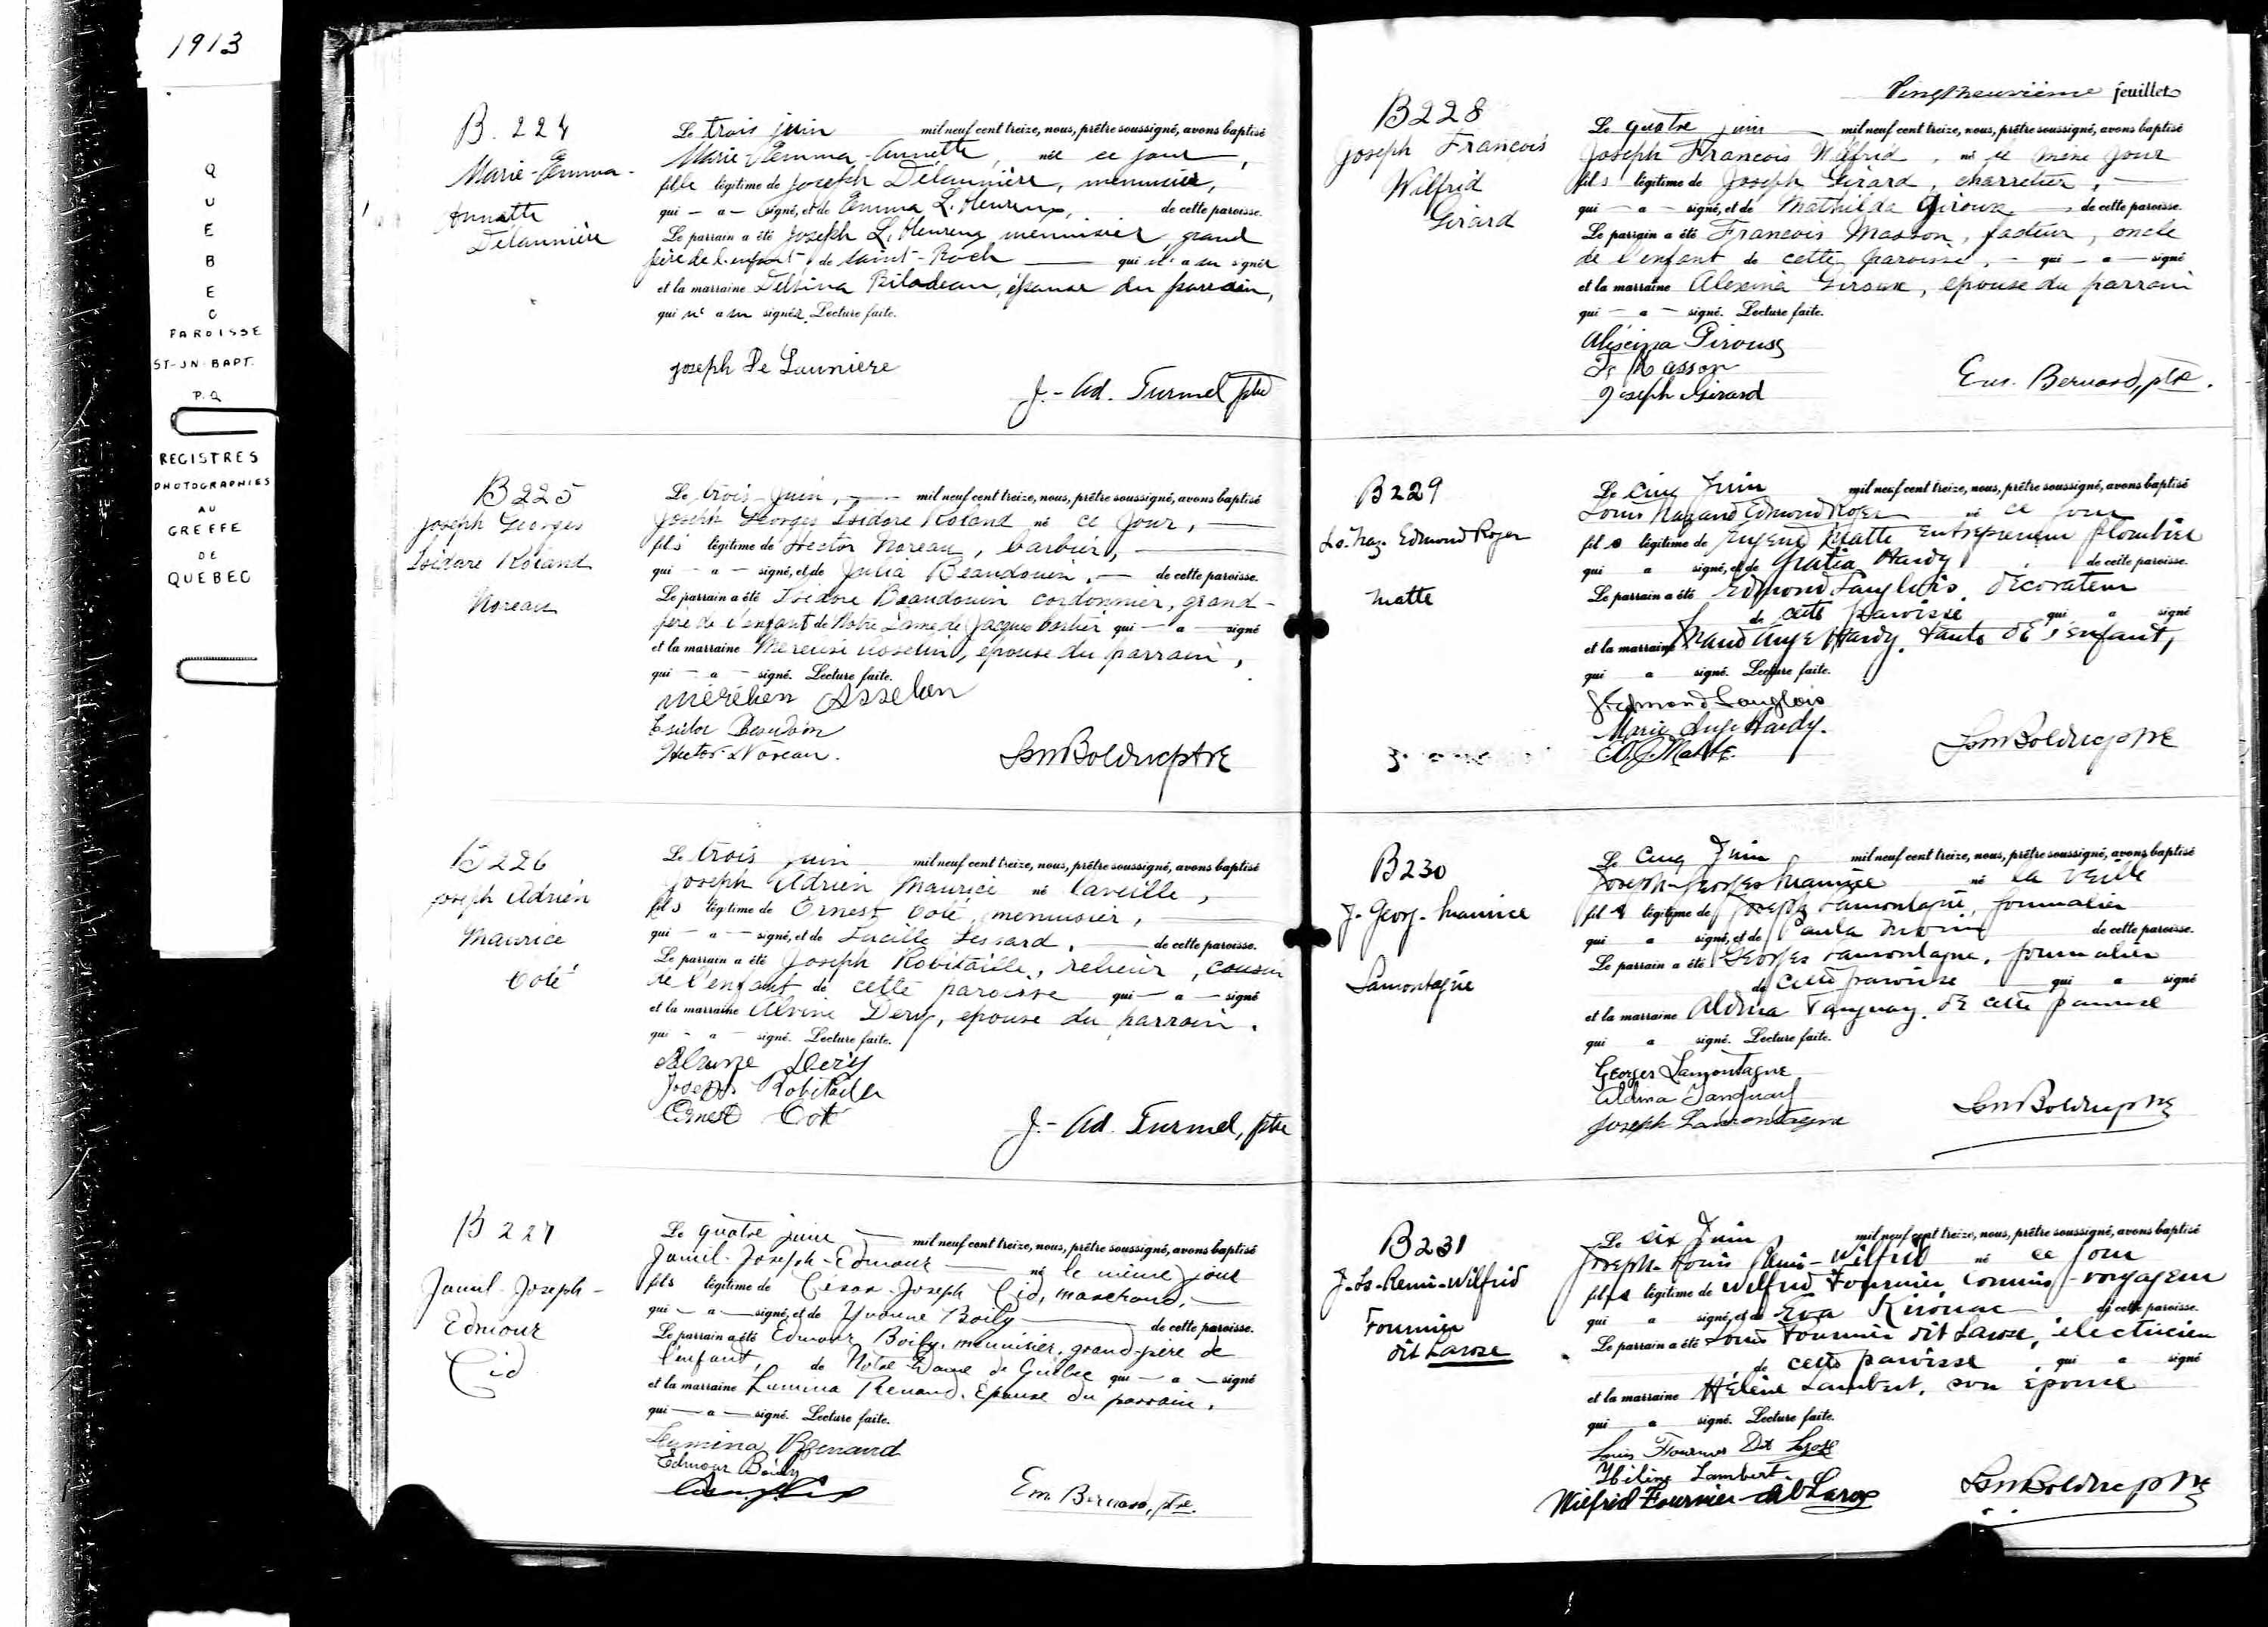 1913
QUEBEC
PAROISSE
ST-JN-BAPT.
P.Q
REGISTRES
PHOTOGRAPHIES
AU
GREFFE
DE
QUEBEC
B. 224
Marie-Emma-
Annette
Delaunière
Le trois juin mil neuf cent treize, nous, prêtre soussigné, avons baptisé
Marie-Emma-Annette, née ce jour,
fille légitime de Joseph Delaunière, menuisier,
qui — a — signé, et de Emma L'Heureux, de cette paroisse.
Le parrain a été Joseph L'Heureux menuisier, grand
père de l'enfant, de Saint-Roch qui n'a su signer
et la marraine Delvina Bilodeau, épouse du parrain,
qui n'a su signer. Lecture faite.
Joseph De Launiere
J.-Ad. Turmel ptre
B225
Joseph Georges
Isidore Roland
Noreau
Le trois Juin, mil neuf cent treize, nous, prêtre soussigné, avons baptisé
Joseph Georges Isidore Roland né ce jour,
fils légitime de Hector Noreau, barbier,
qui — a — signé, et de Julia Beaudouin, de cette paroisse.
Le parrain a été Isidore Beaudouin cordonnier, grand-
père de l'enfant de Notre Dame de Jacques Cartier qui — a — signé
et la marraine asselin, épouse du parrain,
qui — a — signé. Lecture faite.
Asselin
Beaudoin
Hector Noreau.
Bolduc ptre
B226
Joseph Adrien
Maurice
Coté
Le trois juin mil neuf cent treize, nous, prêtre soussigné, avons baptisé
Joseph Adrien Maurice né la veille,
fils légitime de Ernest Coté, menuisier,
qui — a — signé, et de Lucille Lessard, de cette paroisse.
Le parrain a été Joseph Robitaille, relieur, cousin
de l'enfant de cette paroisse qui — a — signé
et la marraine Alvine Dery, épouse du parrain.
qui — a — signé. Lecture faite.
Alvine Dery
Joseph Robitaille
Ernest Coté
J.-Ad. Turmel, ptre
B 227
Jamil-Joseph-
Edmour
Cid
Le quatre juin mil neuf cent treize, nous, prêtre soussigné, avons baptisé
Jamil-Joseph-Edmour né le même jour
fils légitime de César-Joseph Cid, marchand,
qui — a — signé, et de Yvonne Boily de cette paroisse.
Le parrain a été Edmour Boily, menuisier, grand-père de
l'enfant, de Notre Dame de Québec qui — a — signé
et la marraine Lumina Renaud, épouse du parrain,
qui — a — signé. Lecture faite.
Lumina Renaud
Edmour Boily
Em. Bernard, ptre.
Vingtneuvième feuillet
B228
Joseph François
Wilfrid
Girard
Le quatre juin mil neuf cent treize, nous, prêtre soussigné, avons baptisé
Joseph François Wilfrid, né le même jour
fils légitime de Joseph Girard, charretier,
qui — a — signé, et de Mathilda Giroux de cette paroisse.
Le parrain a été François Masson, facteur, oncle
de l'enfant de cette paroisse, qui — a — signé
et la marraine Alexina Giroux, épouse du parrain
qui — a — signé. Lecture faite.
Giroux
Fs Masson
Joseph Girard
Em. Bernard, ptre.
B229
Ls. Naz. Edmond Roger
Matte
Le cinq Juin mil neuf cent treize, nous, prêtre soussigné, avons baptisé
Louis Nazaire Edmond Roger né ce jour
fils légitime de Eugène Matte entrepreneur plombier
qui a signé, et de Gratia Hardy de cette paroisse.
Le parrain a été Edmond Langlois, décorateur
de cette paroisse qui a signé
et la marraine Ange Hardy, tante de l'enfant,
qui a signé. Lecture faite.
Edmond Langlois
Marie Ange Hardy.
Matte.
Bolduc ptre
B230
J-Georg-Maurice
Lamontagne
Le Cinq Juin mil neuf cent treize, nous, prêtre soussigné, avons baptisé
Joseph-Georges Maurice né la veille
fils légitime de Joseph Lamontagne, journalier
qui a signé, et de Paula de cette paroisse.
Le parrain a été Georges Lamontagne, journalier
de cette paroisse qui a signé
et la marraine Aldina Tanguay, de cette paroisse
qui a signé. Lecture faite.
Georges Lamontagne
Aldina Tanguay
Joseph Lamontagne
Bolduc ptre
B231
J-Ls-Remi-Wilfrid
Fournier
dit Larose
Le six Juin mil neuf cent treize, nous, prêtre soussigné, avons baptisé
Joseph-Louis Remi-Wilfrid né ce jour
fils légitime de Wilfrid Fournier Commis-voyageur
qui a signé, et de Eva Kirouac de cette paroisse.
Le parrain a été Louis Fournier dit Larose, électricien
de cette paroisse, qui a signé
et la marraine Hélène Lambert, son épouse
qui a signé. Lecture faite.
Louis Fournier Dit Larose
Hélène Lambert
Wilfrid Fournier dit Larose
Bolduc ptre